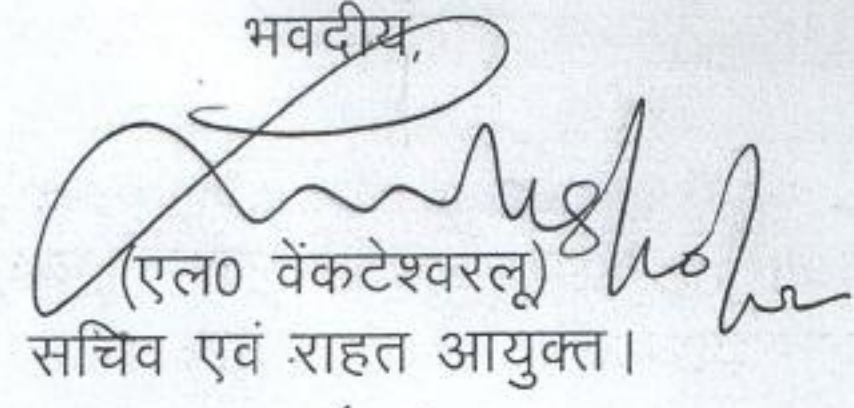 भवदीय,
(एल0 वेंकटेश्वरलू)
सचिव एवं राहत आयुक्त।